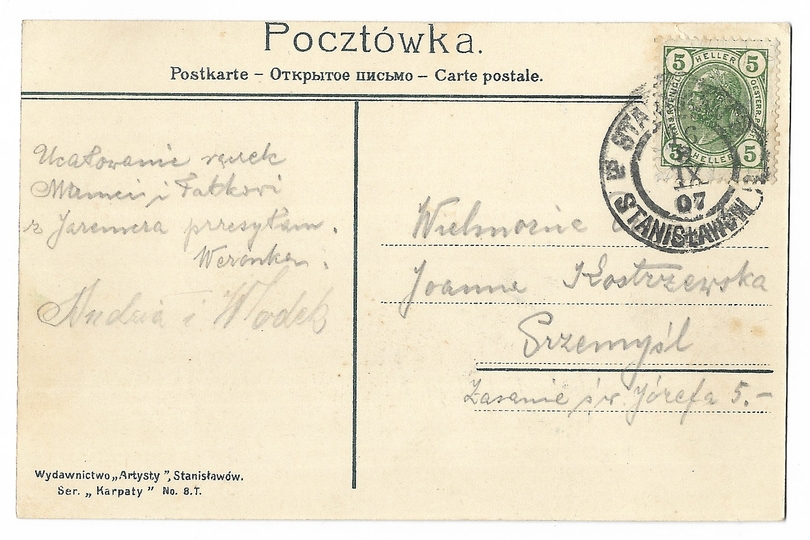 Pocztówka.
Postkarte – Открытое письмо – Carte postale.
5 HELLER 5
5 HELLER 5
STANISŁAWÓW
6
IX
07
Ucałowanie rączek
Mamci i Tatkowi
z Jaremcza przesyłam.
Weronka.
Nudzia i Włodek
Wielmożna
Joanna Kostrzewska
Przemyśl
Zasanie św Józefa 5.-
Wydawnictwo „Artysty”, Stanisławów.
Ser. „Karpaty” No. 8.T.